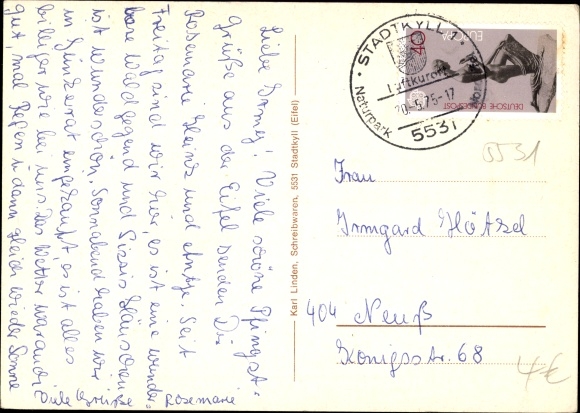 Liebe Irmg! Viele schöne Pfingst-
Grüße aus der Eifel senden Dir
Rosemarie Heinz und Antje. Seit
Freitag sind wir hier, es ist eine wunder-
bare Waldgegend und Sissis Häuschen
ist wunderschön. Sonnabend haben wir
in eingekauft, es ist alles
billiger wie bei uns. Das Wetter war auch
gut, mal Regen u dann gleich wieder Sonne
Viele Grüße Rosemarie
Karl Linden, Schreibwaren, 5531 Stadtkyll (Eifel)
STADTKYLL
Luftkurort
20.-5.75-17
Naturpark
5531
EUROPA
40
DEUTSCHE BUNDESPOST
5531
Frau
Irmgard Hötzel
404 Neuß
Königsstr. 68
4€